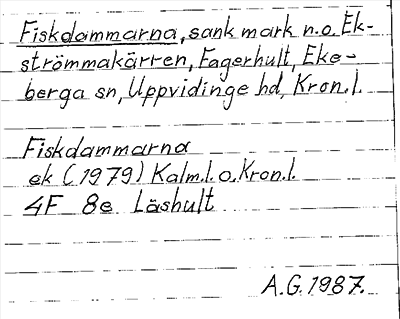 Fiskdammarna, sank mark n.o. Ek-
strömmakärren, Fagerhult, Eke-
berga sn, Uppvidinge hd, Kron.l.
Fiskdammarna
ek (1979) Kalm.l.o.Kron.l.
4F 8e Läshult
A.G. 1987.